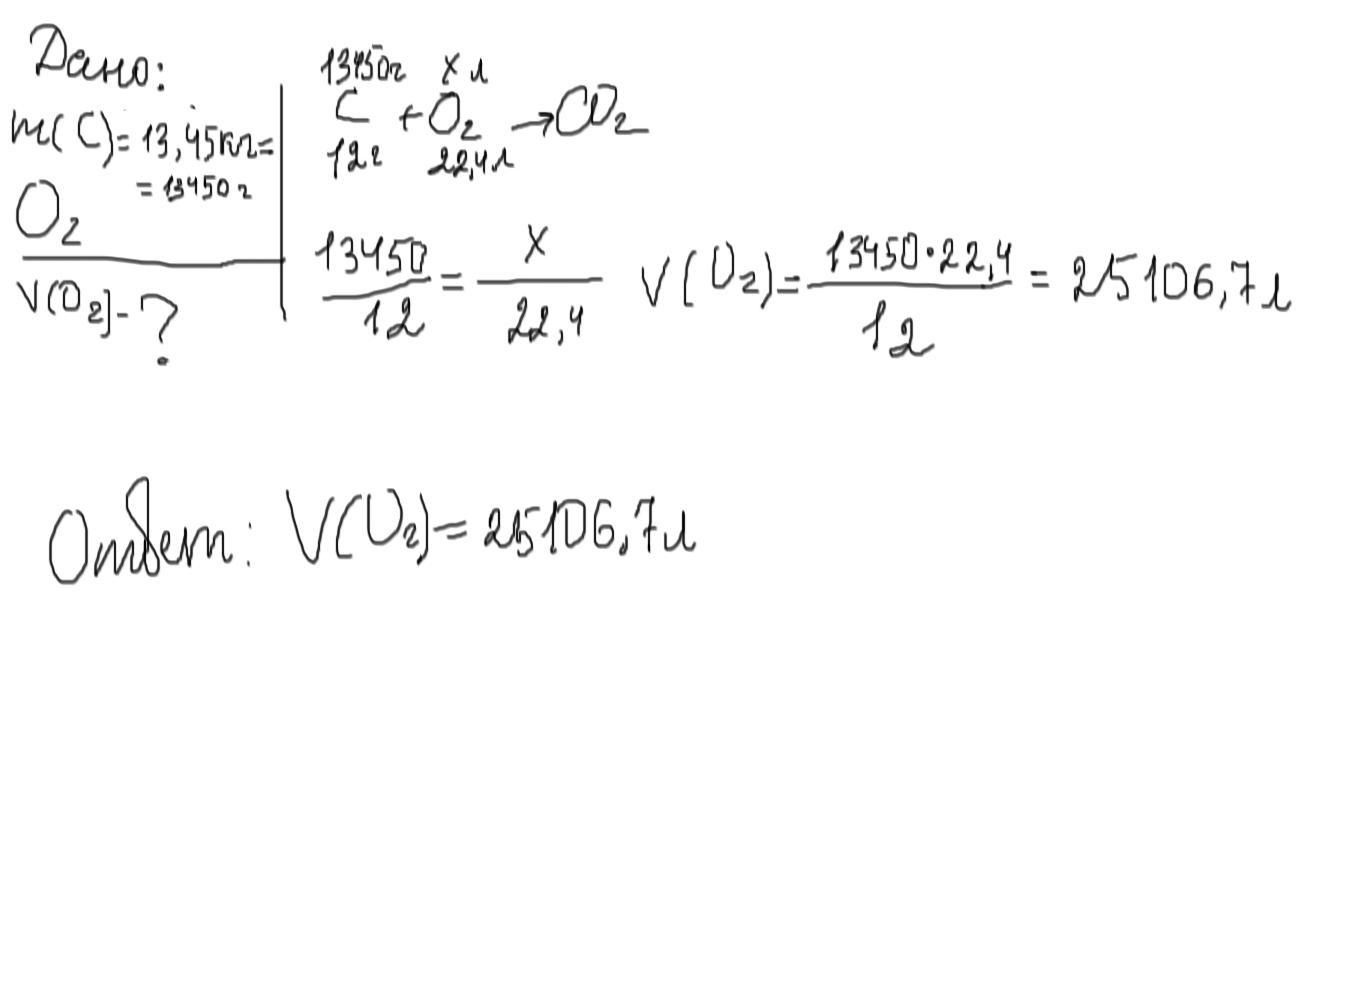 Дано:
m(C)=13,45кг=
=13450г
O2
V(O2)-?
13450г x л
C + O2 → CO2
12г 22,4л
13450/12 = x/22,4 V(O2)= 13450·22,4/12 = 25106,7л
Ответ: V(O2)=25106,7л